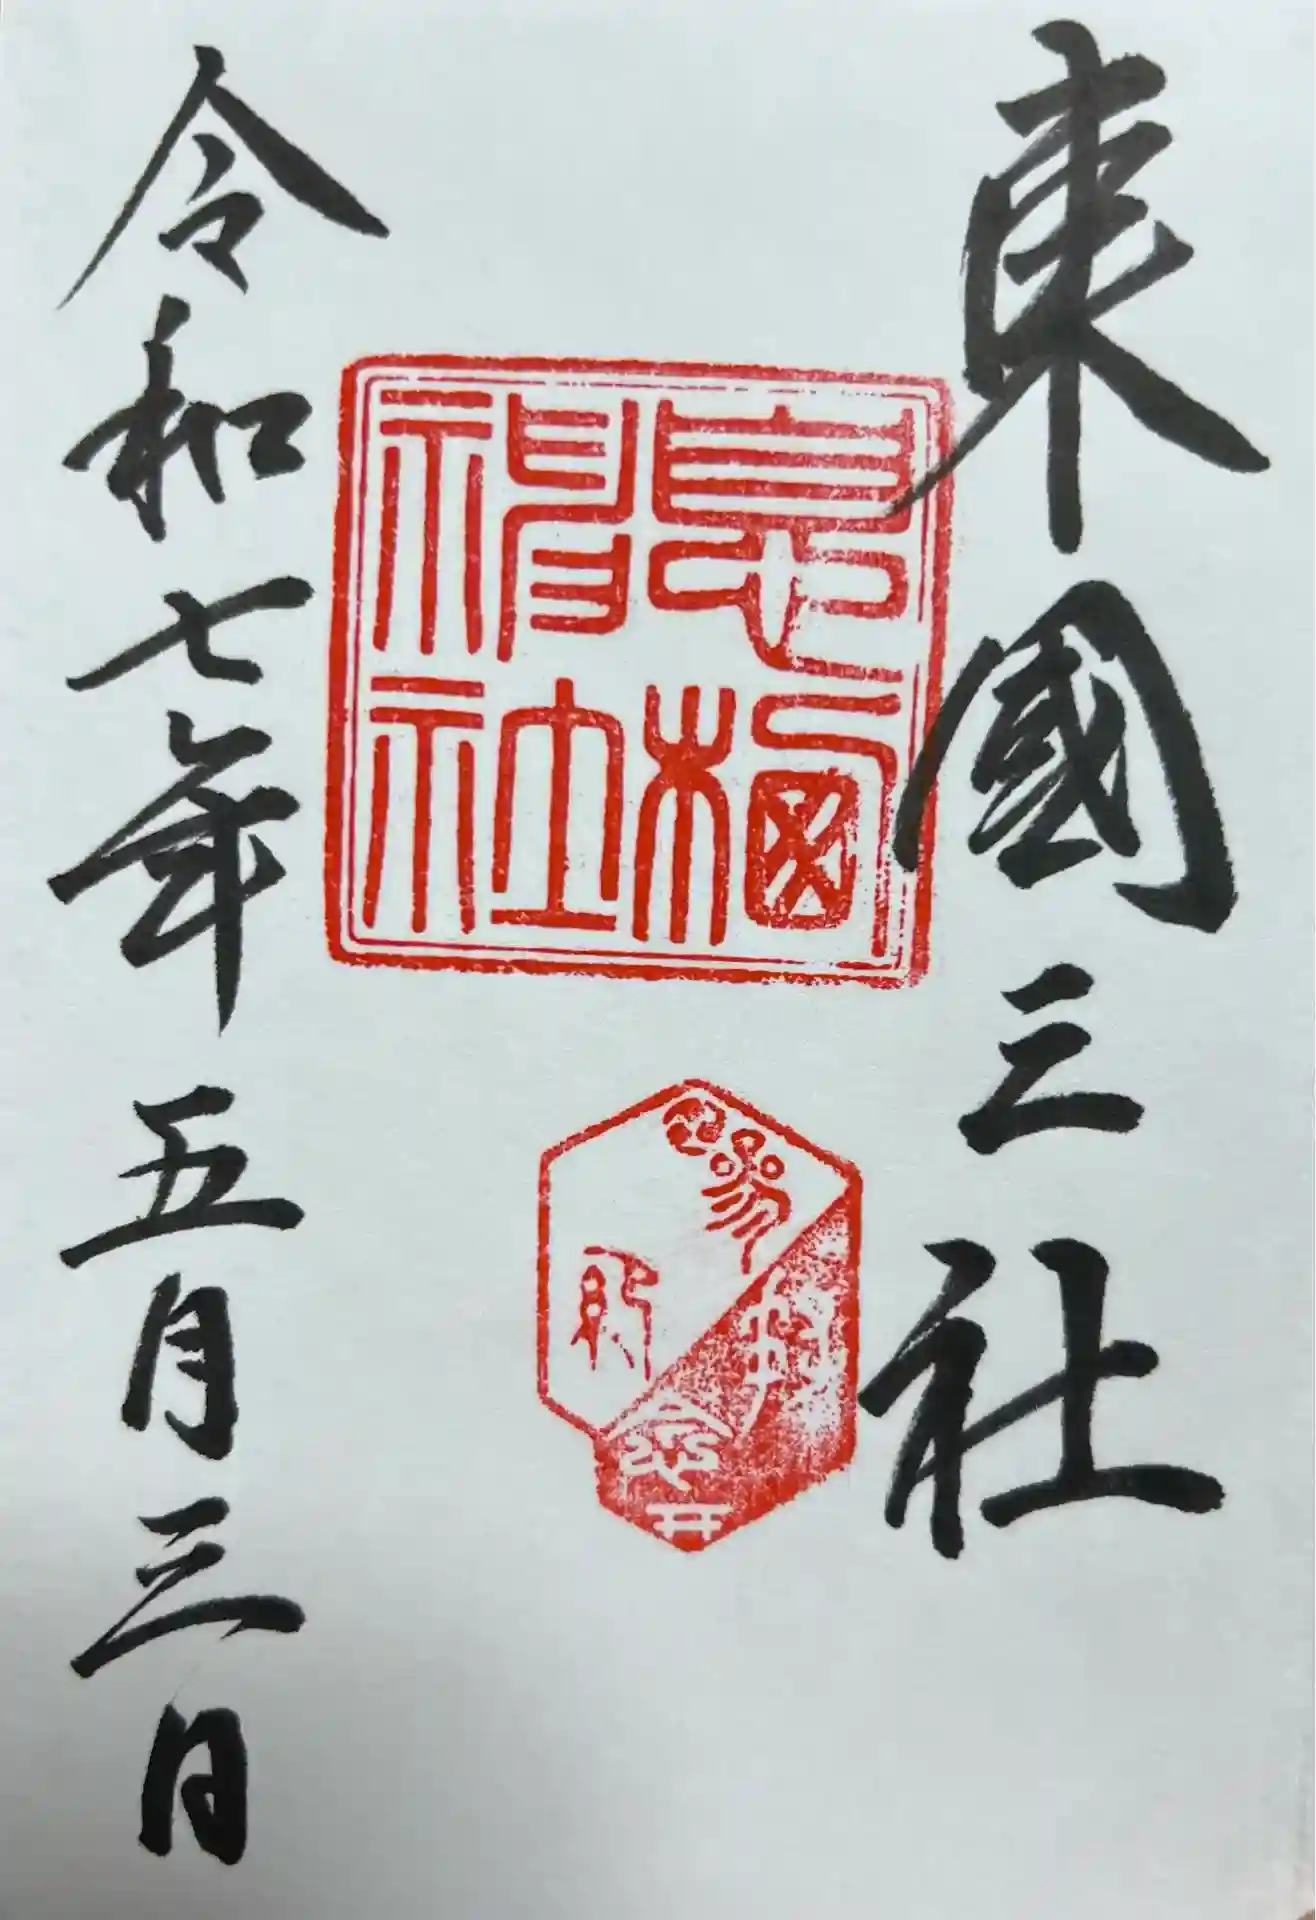 東國三社
息栖
神社
令和七年五月三日